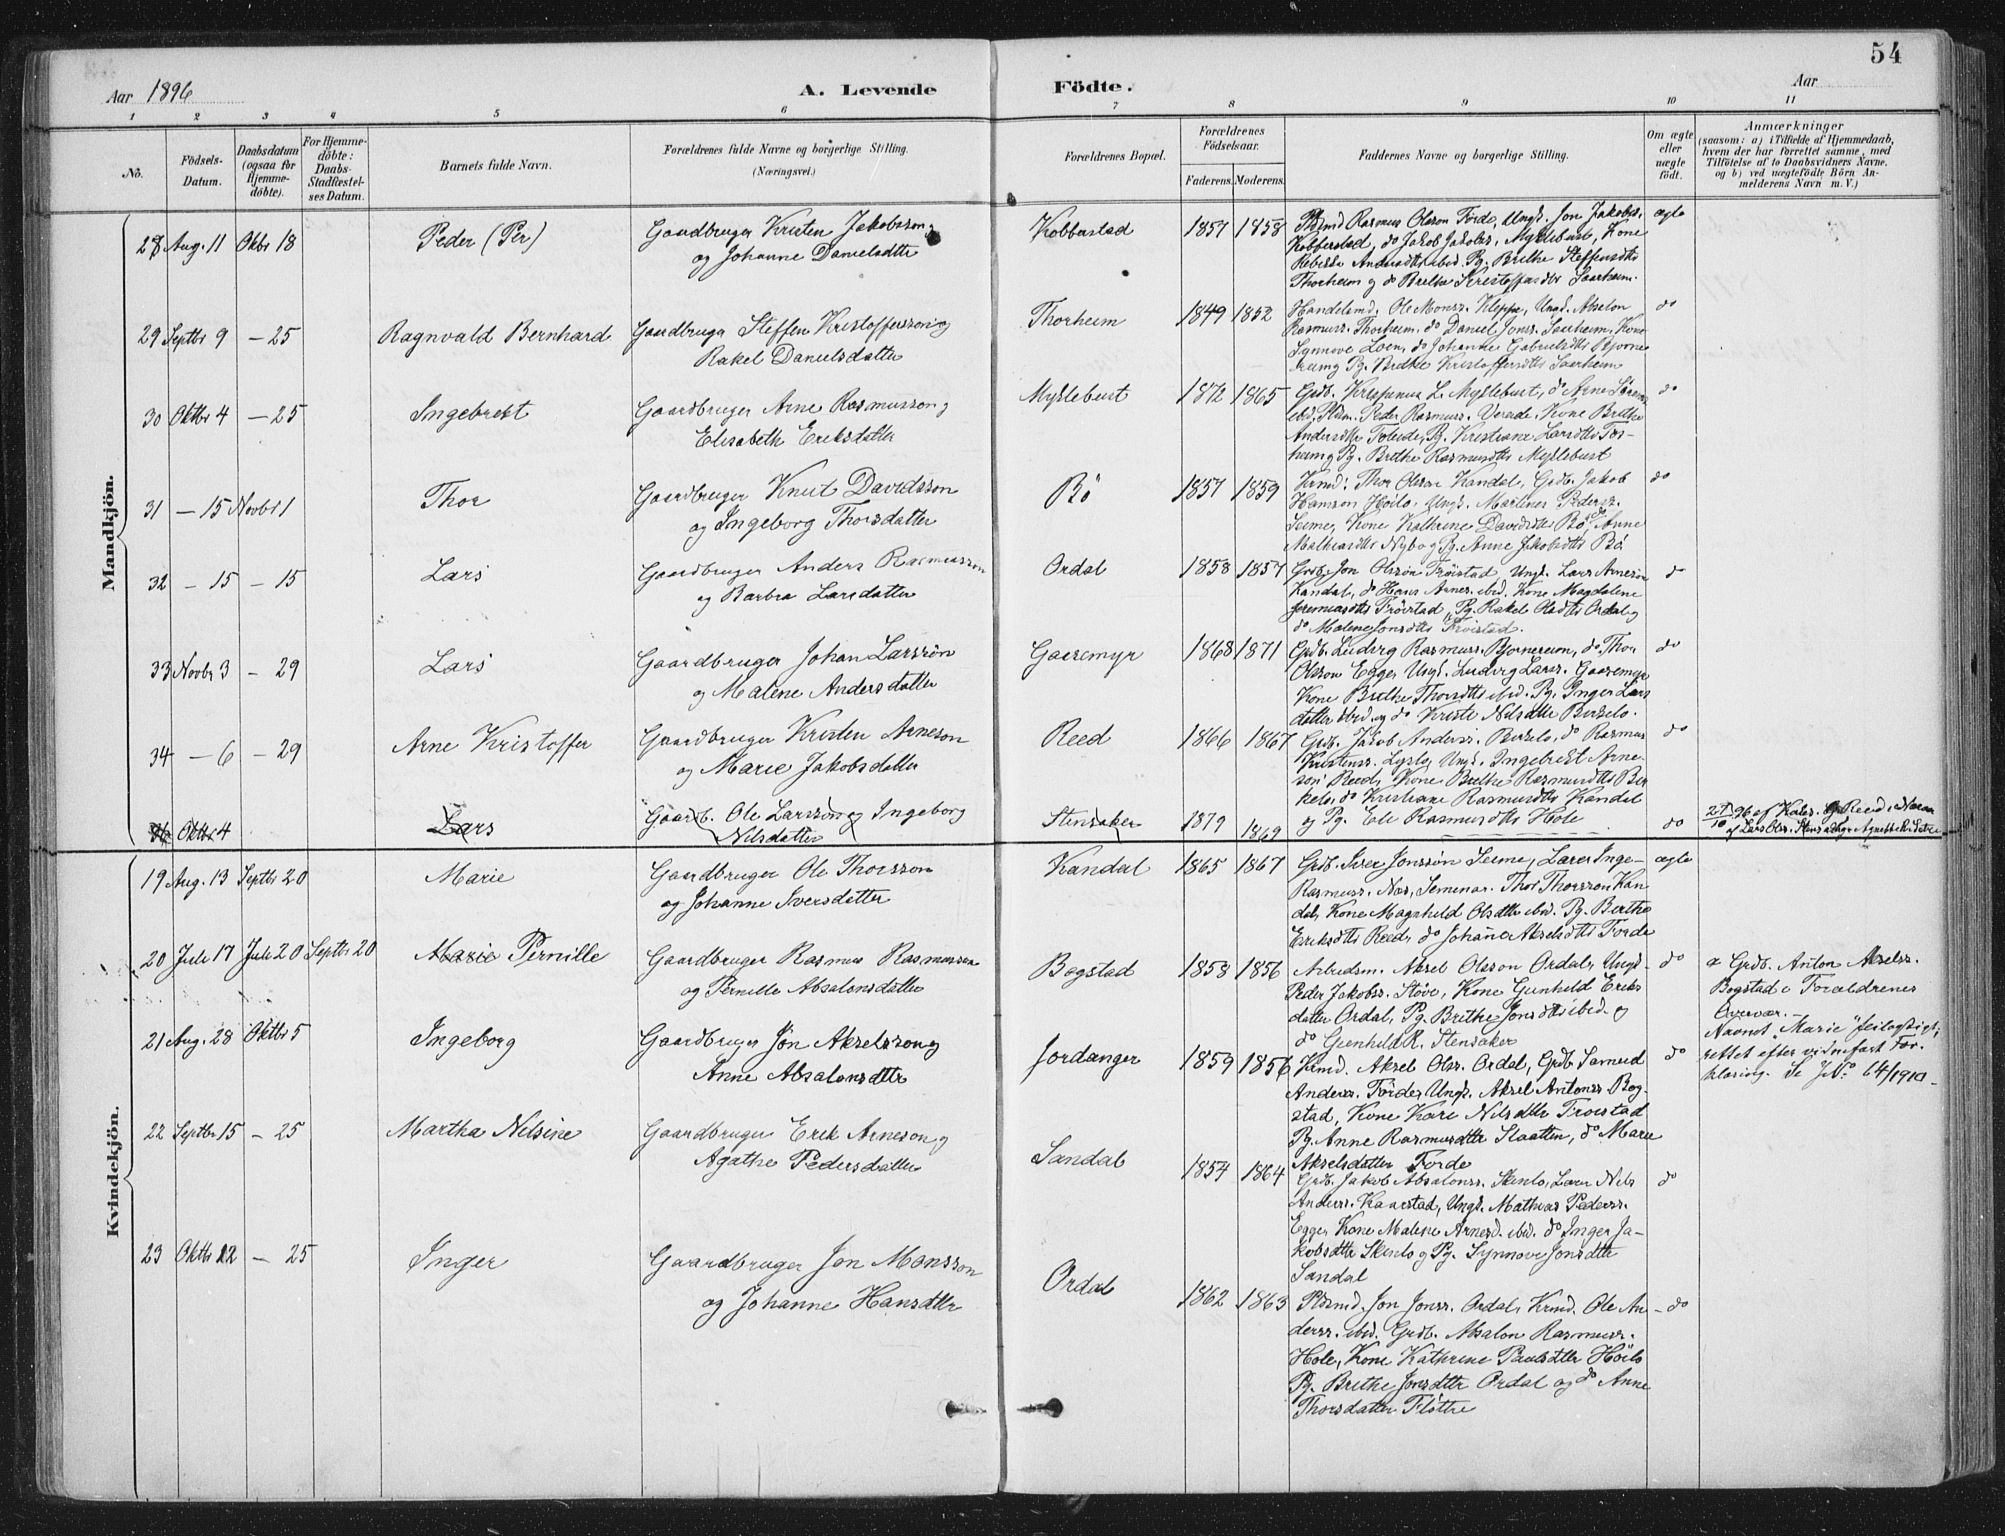 54
Aar 1896
A. Levende
Födte.
Aar
1 2 3 4 5 6 7 8 9 10 11
No.
Födsels-
Datum.
Daabsdatum
(ogsaa for
Hjemme-
döbte).
For Hjemme-
döbte:
Daabs-
Stadfæstel-
ses Datum.
Barnets fulde Navn.
Forældrenes fulde Navne og borgerlige Stilling.
(Næringsvei.)
Forældrenes Bopæl.
Forældrenes
Födselsaar.
Faderens. Moderens.
Faddernes Navne og borgerlige Stilling.
Om ægte
eller
uægte
födt.
Anmærkninger
(saasom: a) i Tilfælde af Hjemmedaab,
hvem der har forrettet samme, med
Tilföielse af to Daabsvidners Navne,
og b) ved uægtefödte Börn An-
melderens Navn m. V.)
Mandkjön.
28 Aug. 11 Oktbr 18 Peder (Per)
Gaardbruger Kristen Jakobsson
og Johanne Danielsdatter
Kobberstad 1857 1858
Plsmd Rasmus Olsson Förde, Ungk. Jon Jakobss.
Kobberstad, do Jakob Jakobss. Myklebust, Kone
Rebekka Andersdtr ibid. Pg. Brithe Steffensdtr
Thorheim og do Brethe Kristoffersdtr Saarheim.
ægte
29 Septbr 9 — 25 Ragnvald Bernhard
Gaardbruger Steffen Kristoffersson og
Rakel Danielsdatter
Thorheim 1849 1852
Handelsmd. Ole Monss. Kleppe, Ungk. Absalon
Rasmuss. Thorheim, do Daniel Jonss. Saarheim, Kone
Synnøve Loen, do Johanne Gabrielsdtr
og Pg. Brethe Kristoffersdtr Saarheim
do
30 Oktbr 4 — 25 Ingebrekt
Gaardbruger Arne Rasmusson og
Elisabeth Eriksdatter
Myklebust 1872 1865
Grdb. Krispinus L. Myklebust, do Arne
ibid. Plsm. Peder Rasmuss. Vereide, Kone Brithe
Andersdtr Pg. Kristiane Larsdtr
Pg. Brethe Rasmusdtr Myklebust
do
31 — 15 Novbr 1 Thor
Gaardbruger Knut Davidsson
og Ingeborg Thorsdatter
Bö 1857 1859
Krmd. Thor Olsson Kandal, Grdb. Jakob
Hansson Höilo, Ungk. Martines Pederss.
Seime, Kone Kathrine Davidsdtr Bö, do Anne
Mathiasdtr Nybö og Pg. Anne Jakobsdtr Bö
do
32 — 15 — 15 Lars
Gaardbruger Anders Rasmusson
og Barbra Larsdatter
Ordal 1858 1857
Grdb. Jon Olsson Tröistad, Ungk. Lars Arnesön
Kandal, do Hans Arness. ibid. Kone Magdalene
Jeremiasdtr Tröistad, Pg. Rakel Olsdtr Ordal og
do Malene Jonsdtr Tröistad.
do
33 Novbr 3 — 29 Lars
Gaardbruger Johan Larssön
og Malene Andersdatter
Gaasemyr 1868 1871
Grdb. Ludvig Rasmuss. Bjørnereim, do Thor
Olsson Egge, Ungk. Ludvig Larss. Gaasemyr
Kone Brithe Thorsdtr ibid. Pg. Inger Lars
datter ibid og do Kirste Nilsdtr Birkelo.
do
34 — 6 — 29 Arne Kristoffer
Gaardbruger Kristen Arneson
og Marie Jakobsdatter
Reed 1866 1867
Grdb. Jakob Anderss. Birkelo, do Rasmus
Kristenss. Lyslo, Ungk. Ingebrekt Arne-
son Reed, Kone Brethe Rasmusdtr Bir
kelo, do Kristiane Rasmusdtr Kandal
og Pg. Ele Rasmusdtr Hole
do
Oktbr 4 Lars
Gaardb. Ole Larsson og Ingeborg
Nilsdatter
Stensaker 1879 1869
do
27/10 96 af Reed
af Lars Olss. Stensaker
Kvindekjön.
19 Aug. 13 Septbr 20 Marie
Gaardbruger Ole Thorsson
og Johanne Iversdatter
Kandal 1865 1867
Grdb. Iver Jonssön Seime, Lærer Inge-
Rasmuss. Nos, Seminar. Thor Thorsson Kan
dal, Kone Magnhild Olsdtr ibid. Pg. Birthe
Eriksdtr Reed, do Johanne Akselsdtr Förde
ægte
20 Juli 17 Juli 20 Septbr 20 Marie Pernille
Gaardbruger Rasmus Rasmusson
og Pernille Absalonsdatter
Bogstad 1858 1856
Arbeidsm. Aksel Olsson Ordal, Ungk.
Peder Jakobss. Støve, Kone Gunhild Eriks
datter Ordal, Pg. Brithe Jonsdtr ibid. og
do Gunhild R. Stensaker
do
a Grdb. Anton Akselss.
Bogstad i Forældrenes
Overvær. —
Navnet „Marie" feilagtigt,
rettet efter vidnefast For.
klaring. Se JNo. 64/1910.
21 Aug. 28 Oktbr 5 Ingeborg
Gaardbruger Jon Akselsson og
Anne Absalonsdtr
Jordanger 1859 1856
Krmd. Aksel Olss. Ordal, Grdb. Samuel
Anderss. Förde, Ungk. Aksel Antonss Bog-
stad, Kone Kari Nilsdtr Troistad
Pg. Anne Rasmusdtr Slaatten, do Marie
Akselsdatter Förde
do
22 Septbr 15 — 25 Martha Nilsine
Gaardbruger Erik Arneson og
Agathe Pedersdatter
Sandal 1854 1864
Grdb. Jakob Absalonss. Skinlo, Lærer Nils
Anderss. Kaarstad, Ungk. Mathias Pederss.
Egge, Kone Malene Arnesd. ibid. do Inger Ja-
kobsdtr Skinlo og Pg. Synnove Jonsdtr
Sandal
do
23 Oktbr 12 — 25 Inger
Gaardbruger Jon Monsson
og Johanne Hansdtr
Ordal 1862 1863
Plsmd. Jon Jonss. Ordal, Krmd. Ole An-
derss. ibid. Grdb. Absalon Rasmuss.
Hole, Kone Kathrine Paulsdtr Höilo
Pg. Brithe Jonsdtr Ordal og do Anne
Thorsdatter Flöttre
do